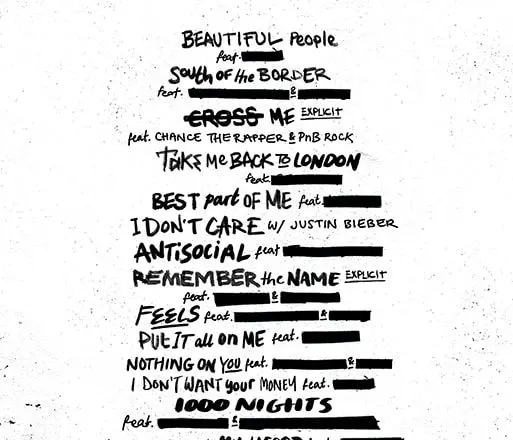 BEAUTIFUL People
feat.
South OF the BORDER
feat. &
CROSS ME EXPLICIT
feat. CHANCE THE RAPPER & PnB ROCK
TAKE Me BACK To LONDON
feat.
BEST part OF ME feat.
I DON'T CARE w/ JUSTIN BIEBER
ANTISOCIAL feat
REMEMBER the NAME EXPLICIT
feat. &
FEELS feat. &
PUT IT all on ME feat.
NOTHING ON YOU feat. &
I DON'T WANT your MONEY feat.
1000 NIGHTS
feat. &